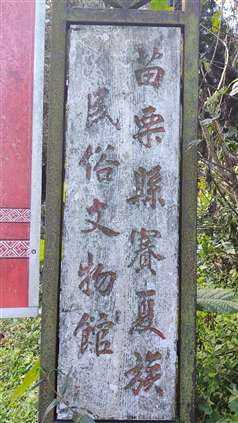 苗栗縣賽夏族
民俗文物館